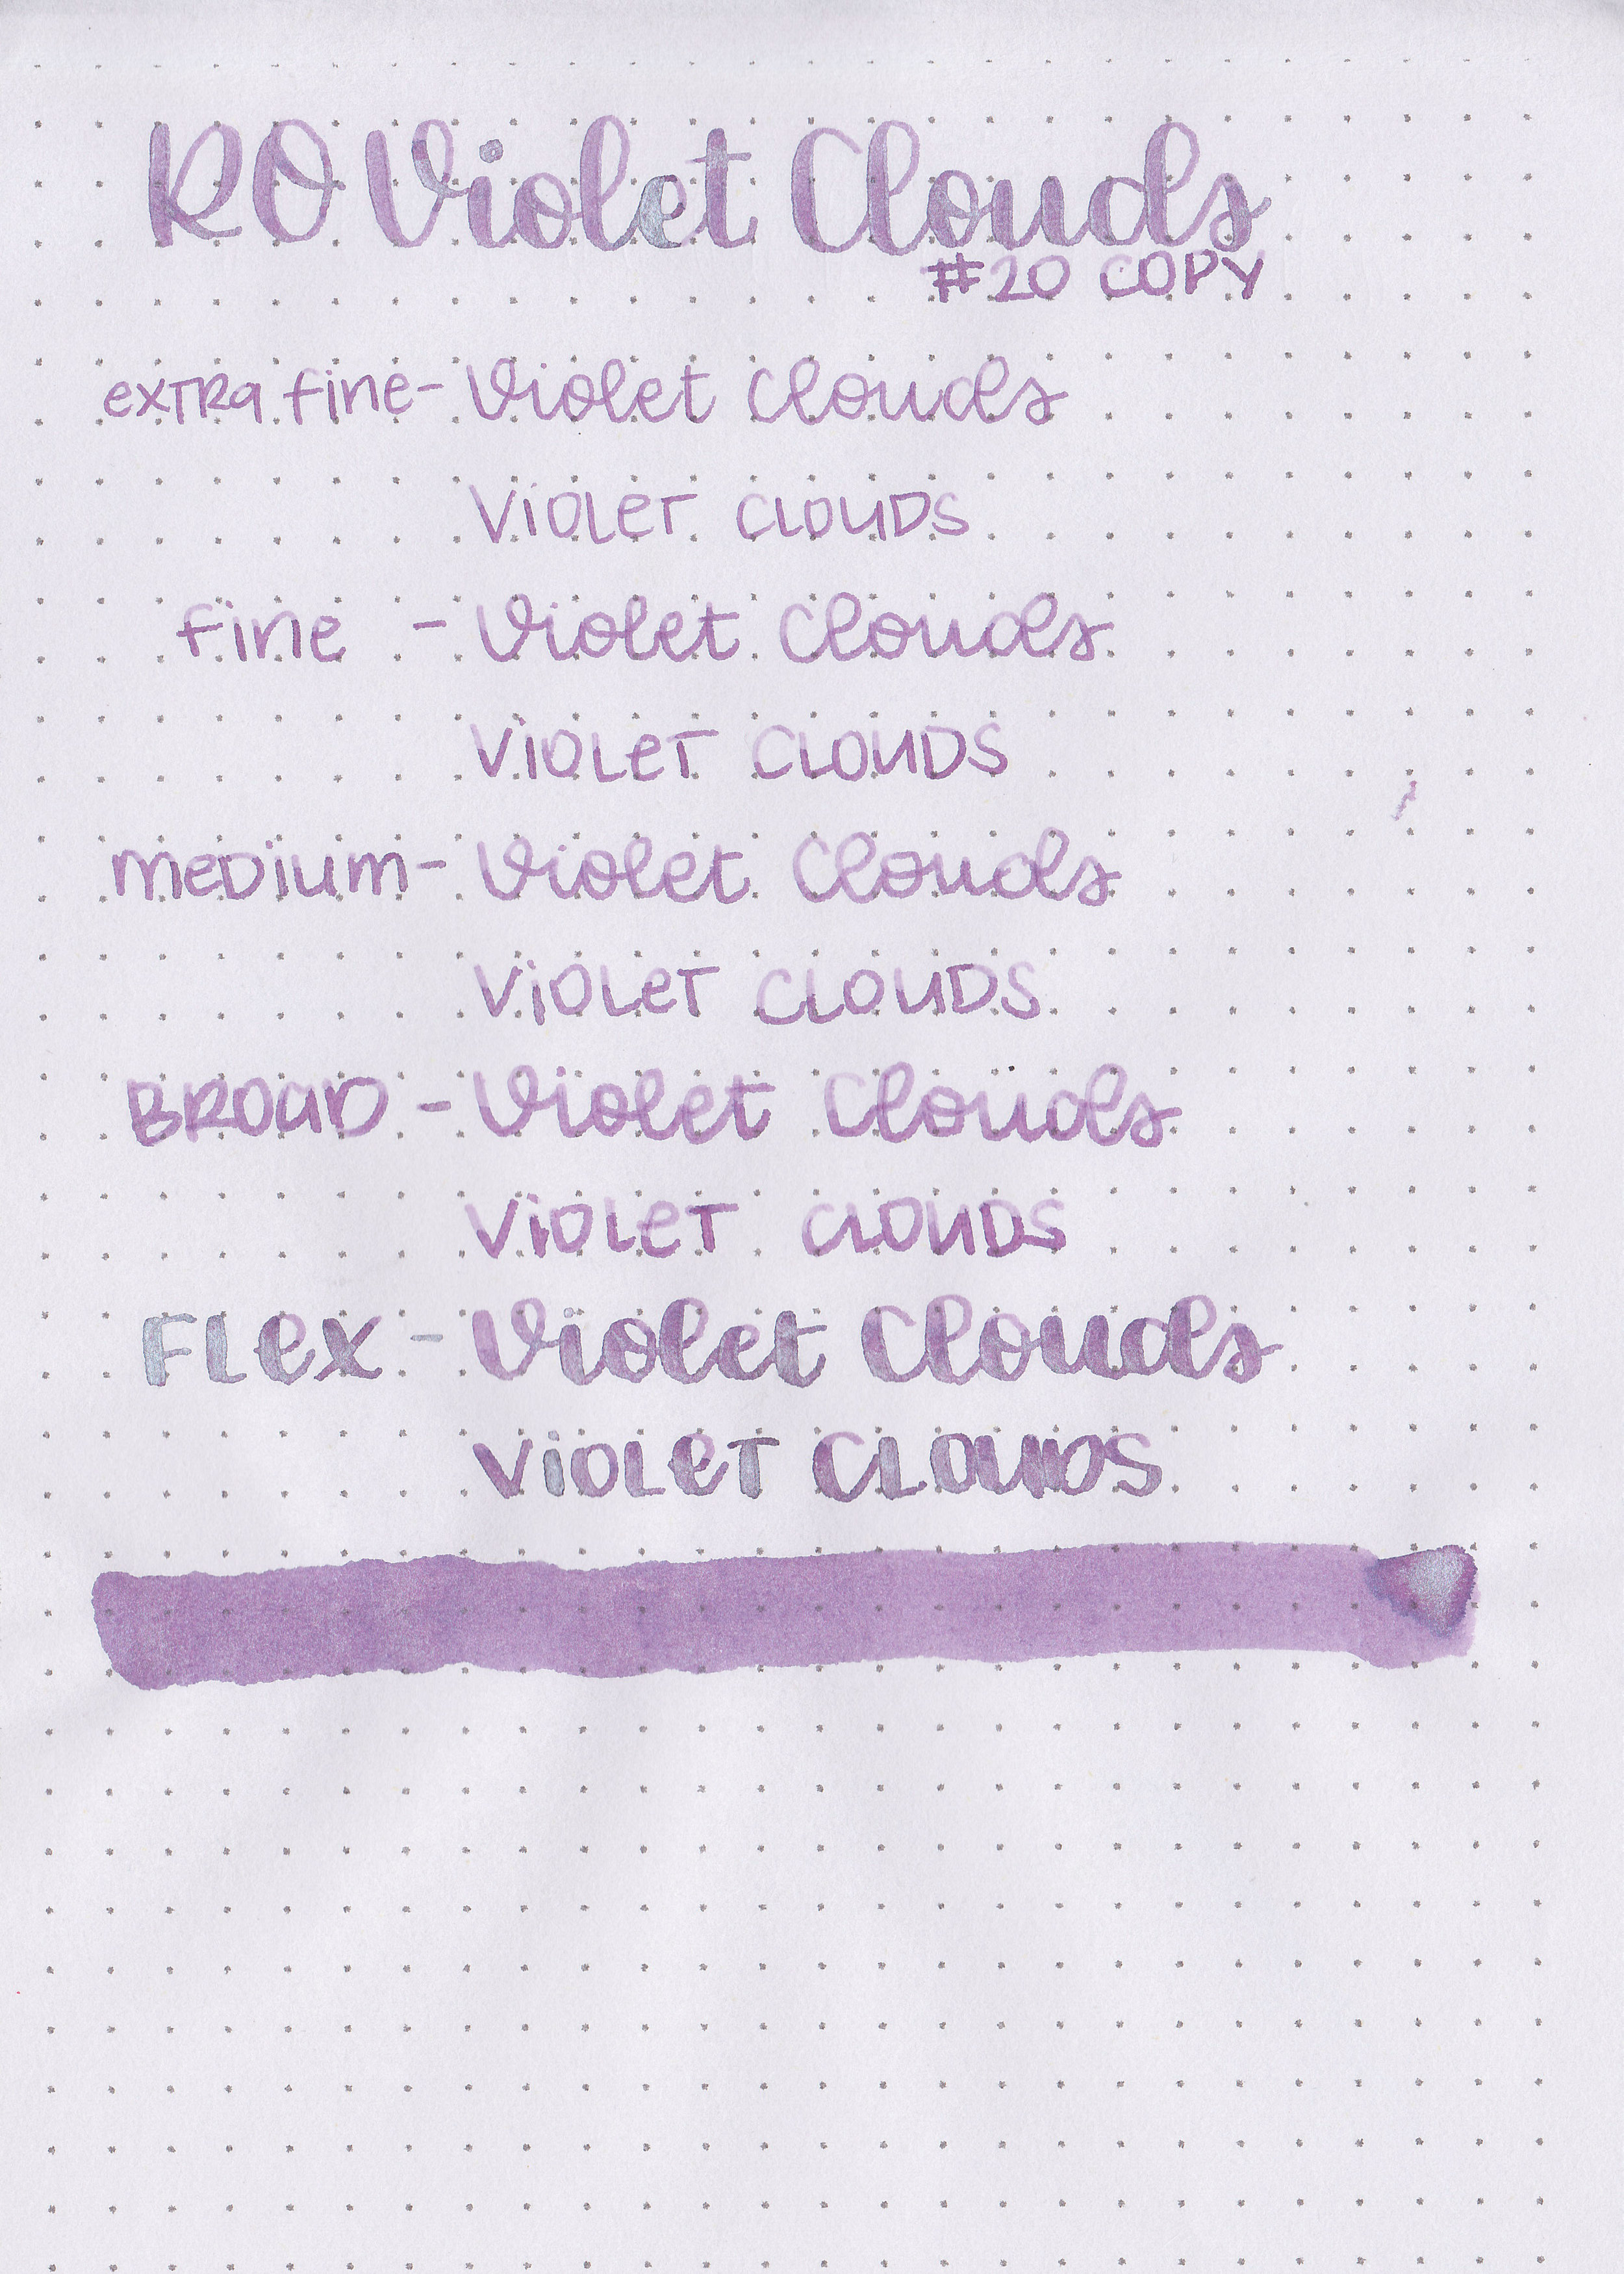 RO Violet Clouds
#20 COPY
extra fine - Violet Clouds
VIOLET CLOUDS
fine - Violet Clouds
VIOLET CLOUDS
MEDIUM - Violet Clouds
VIOLET CLOUDS
BROAD - Violet Clouds
VIOLET CLOUDS
FLEX - Violet Clouds
VIOLET CLOUDS